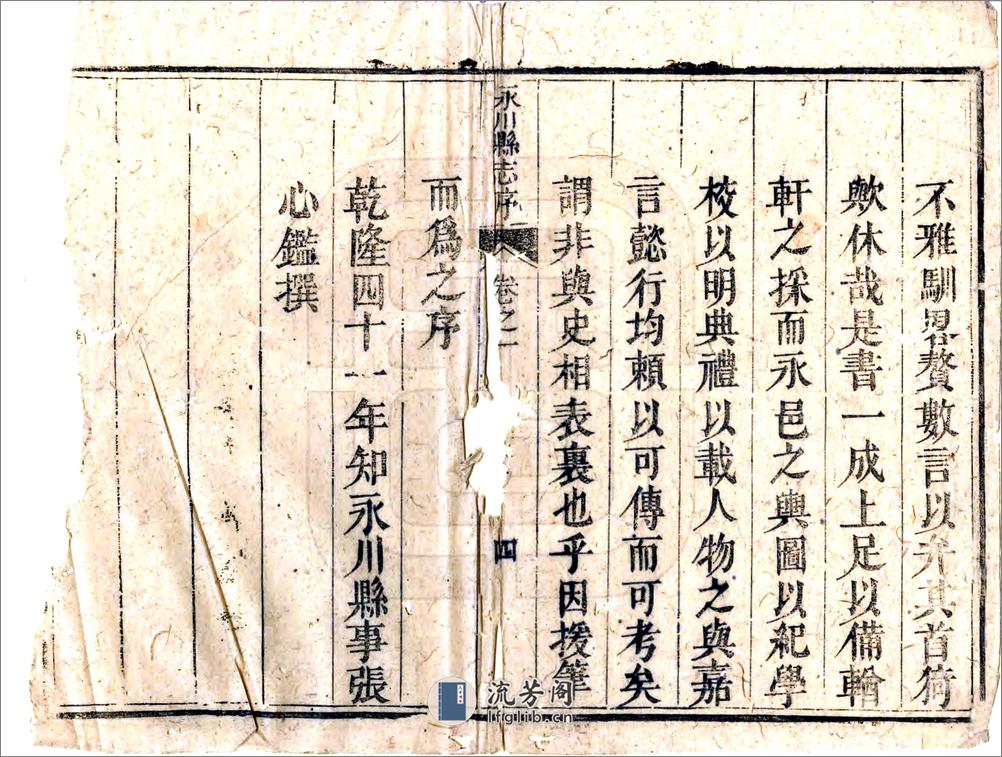 不雅馴畧贅數言以弁其首猗
歟休哉是書一成上足以備輶
軒之採而永邑之輿圖以紀學
校以明典禮以載人物之與嘉
言懿行均賴以可傳而可考矣
謂非與史相表裏也乎因援筆
永川縣志序
卷之一
四
而爲之序
乾隆四十一年知永川縣事張
心鑑撰
流芳阁
lfglib.cn